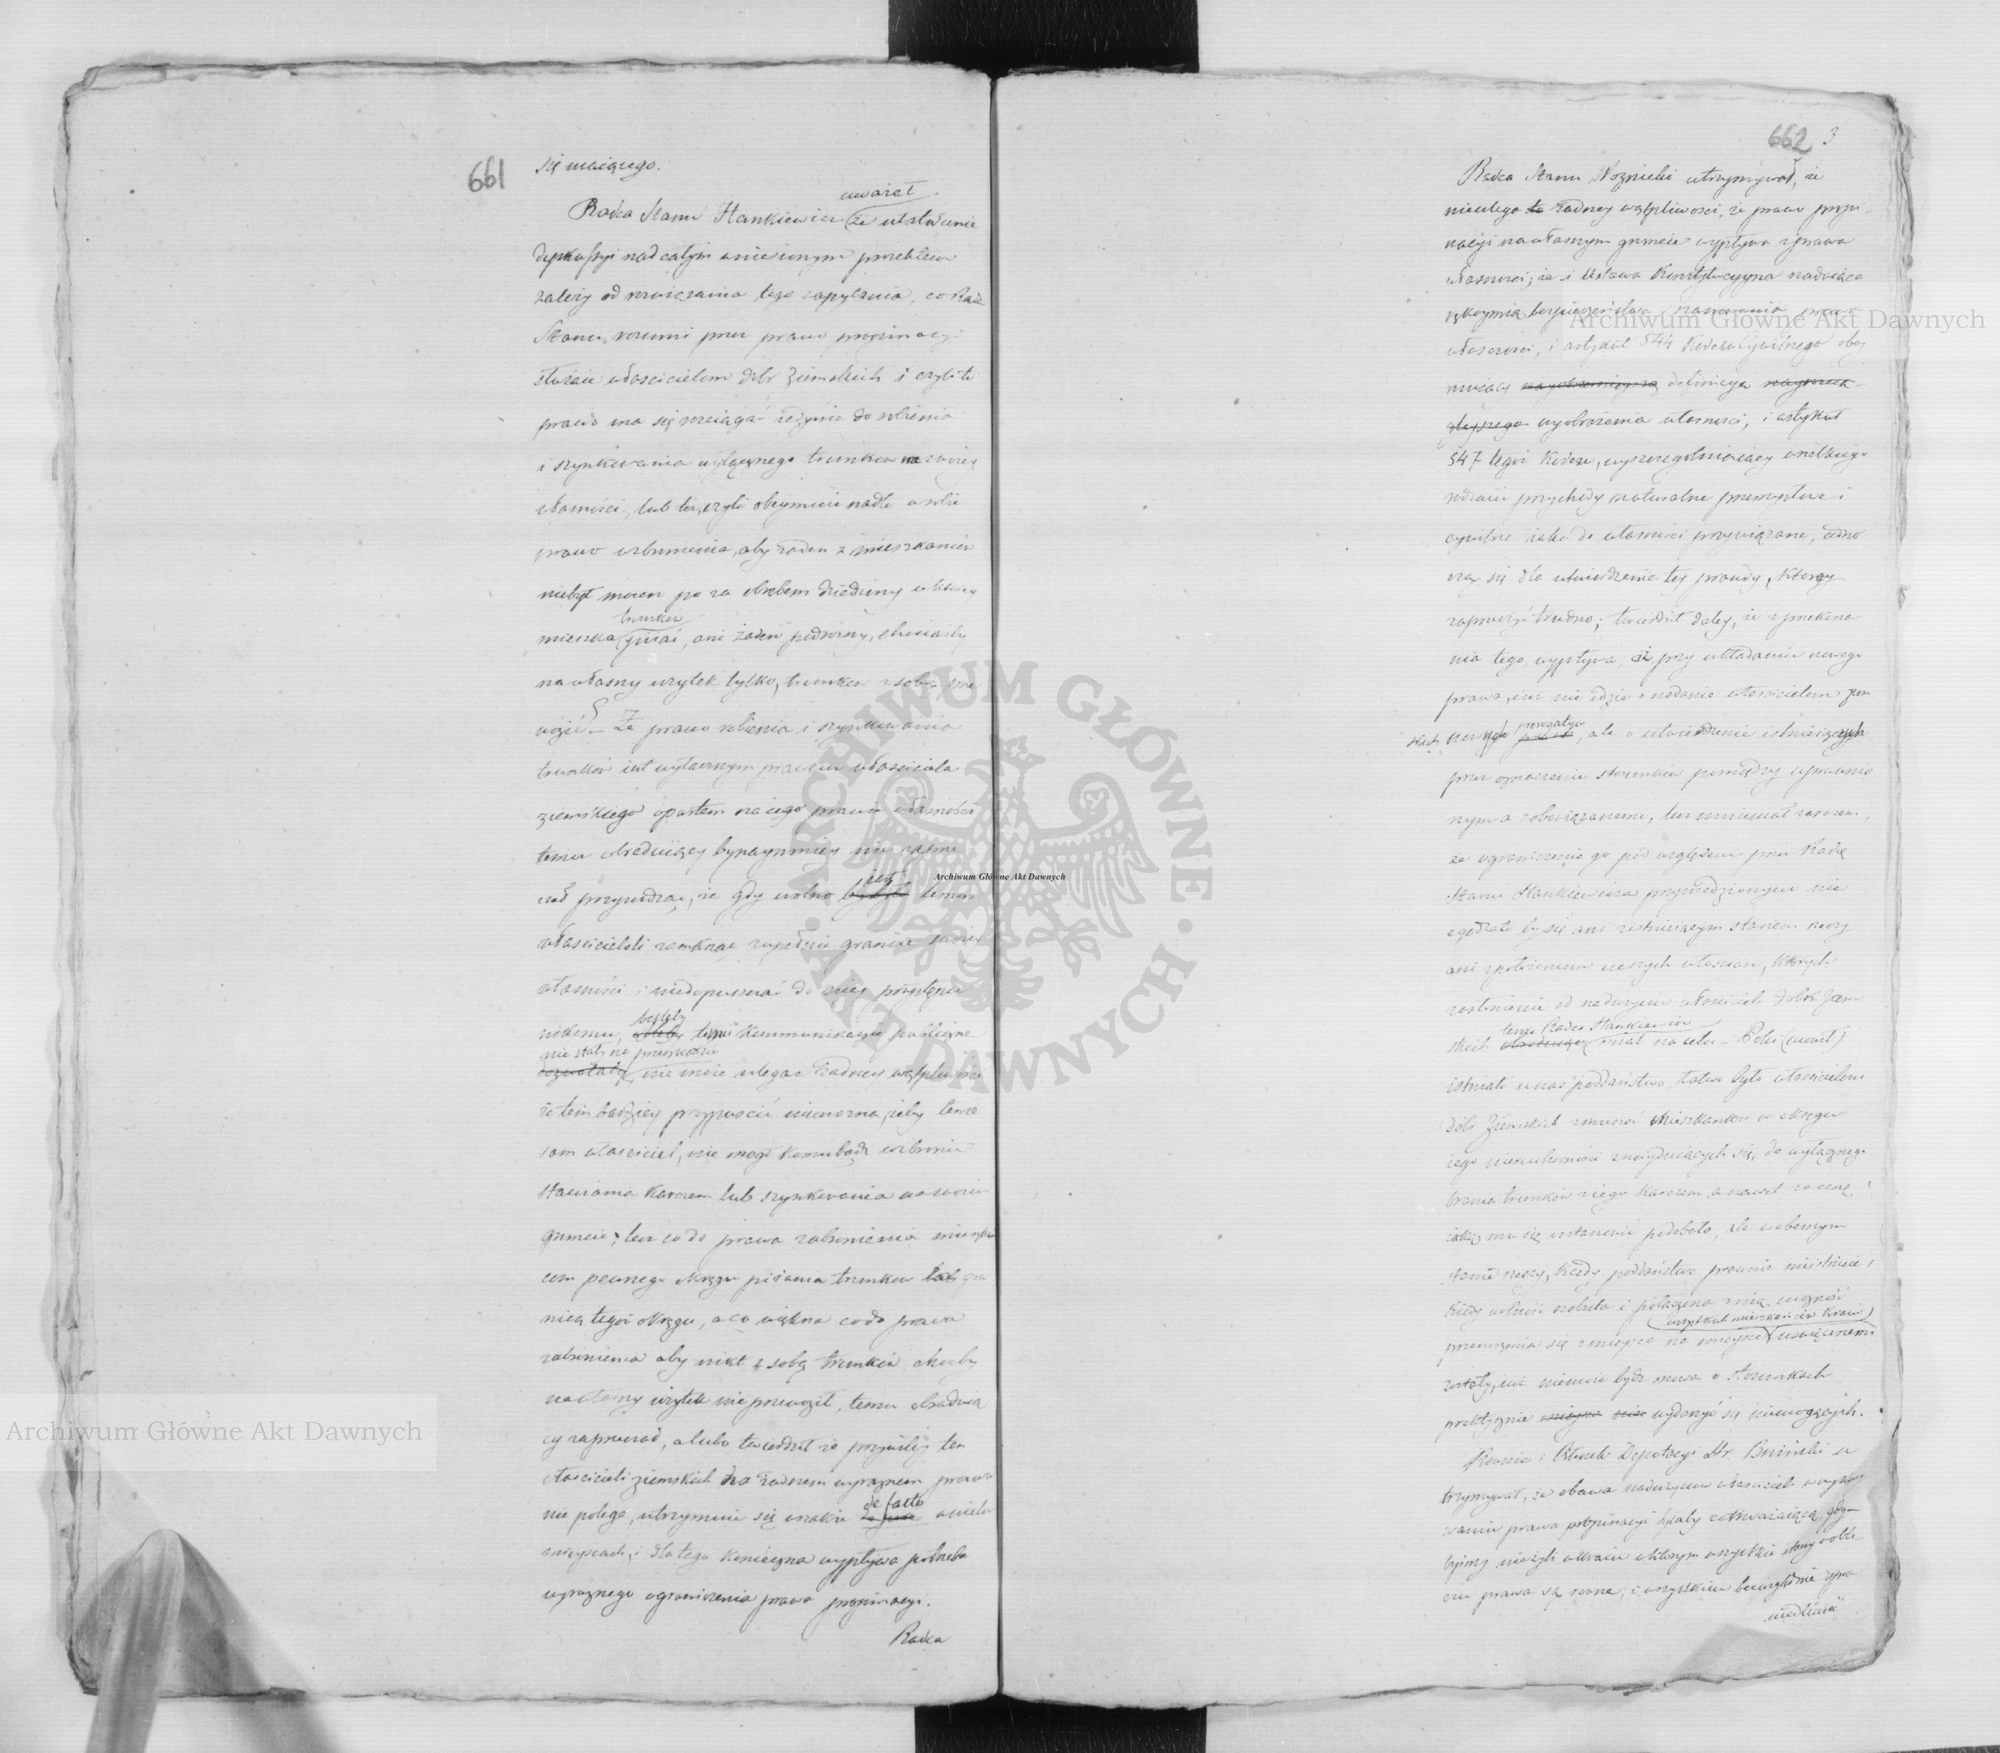 661
się maiącego.
uważał
Radca Stanu Stankiewicz że ustalenie
dyskussyi nad całym wniesionym proiektem
zależy od rozwiązania tego zapytania, co Rada
Stanu rozumi przez prawo propinacyi
służące właścicielom dóbr Ziemskich i czyli to
prawo ma się rozciągać iedynie do robienia
i szynkowania wyłącznego trunków na swoiey
własności, lub też, czyli obeymuie nadto w sobie
prawo wzbronienia, aby żaden z mieszkańców
niebył mocen po za obrębem dziedziny w którey
trunków
mieszka pijać, ani żaden podróżny, chociażby
na własny użytek tylko, trunków z sobą
wozić. – Że prawo robienia i szynkowania
trunków iest wyłącznym prawem właściciela
ziemskiego opartem na iego prawie własności
temu Obraduiący bynaymniey nie
iest
przyznaiąc, że gdy wolno temu
właścicielowi zamknąć zupełnie granice swoiey
własności i niedopuszczać do niey przystępu
byleby
nikomu, temu kommunikacye publiczne
nie stało na przeszkodzie
nie może ulegać żadney wątpliwości
że tem bardziey przypuścić niemożna, żeby tenże
sam właściciel, nie mógł komu bądź wzbronić
stawiania karczem lub szynkowania na swoim
gruncie; lecz co do prawa zabronienia mieszkań-
com pewnego okręgu piiania trunków za gra
nicą tegoż okręgu, a co większa co do prawa
zabronienia aby nikt z sobą trunków choćby
na własny użytek nie przewoził, temu Obraduią
cy zaprzeczał, a lubo twierdził że przywiley ten
właścicieli ziemskich na żadnem wyraznem prawie
de facto
nie polega, utrzymuie się wszakże de jure w wielu
mieyscach, i dla tego konieczna wypływa potrzeba
wyraznego ograniczenia prawa propinacyi.
Radca
662 3
Radca Stanu Woznicki utrzymywał, że
nieulega to żadney wątpliwości, że prawo propi-
nacyi na własnym gruncie wypływa z prawa
własności; że i Ustawa Konstytucyyna nadaiąca
rękoymią bezpieczeństwa szanowania prawa
własności, i artykuł 544 Kodexu Cywilnego obey
muiący definicyą
wyobrażenia własności, i artykuł
547 tegoż Kodexu, wyszczegolniaiący wszelkiego
rodzaiu przychody naturalne przemysłowe i
cywilne iako do własności przywiązane, łączą
się dla utwierdzenia tey prawdy, którey
zaprzeczyć trudno; twierdził daley, że z przekona
nia tego wypływa, iż przy układaniu nowego
prawa, iuż nie idzie o nadanie właścicielom ziem
prerogatyw
skich nowych , ale o utwierdzenie istnieiących
przez oznaczenie stosunków pomiędzy uprawnio
nym a zobowiązanemi, lecz mniemał zarazem,
że ograniczenie go pod względem przez Radcę
Stanu Stankiewicza przywiedzionym nie
zgadzało by się ani z istnieiącym stanem rzeczy
ani z położeniem naszych włościan, których
zasłonienie od nadużyciów właścicieli dóbr Ziem
tenże Radca Stankiewicz
skich miał na celu. Póki (uważał)
istniało u nas poddaństwo, łatwo było właścicielom
dóbr Ziemskich zmusić mieszkańców w okręgu
iego nieruchomości znayduiących się, do wyłącznego
brania trunków z iego karczem, a nawet za cenę,
iaką mu się ustanowić podobało, ale w obecnym
stanie rzeczy, kiedy poddaństwo prawnie nieistnieie,
kiedy wolność osobista i połączona z nią wolność
wszystkich mieszkańców Kraiu
przenoszenia się z mieysca na mieysce uświęconemi
zostały, iuż niemoże być mowa o stosunkach
praktycznie wydarzyć się niemogących.
Również i Członek Deputacyi Hr. Bniński u
trzymywał, że obawa nadużyciów właścicieli w wykony
waniu prawa propinacyi byłaby zatrważaiącą, gdy-
byśmy nieżyli w kraiu w którym wszystkie stany w obli-
czu prawa są równe, i wszystkim bezwzględnie spra
wiedliwość
Archiwum Główne Akt Dawnych
Archiwum Główne Akt Dawnych
Archiwum Główne Akt Dawnych
ARCHIWUM GŁÓWNE AKT DAWNYCH